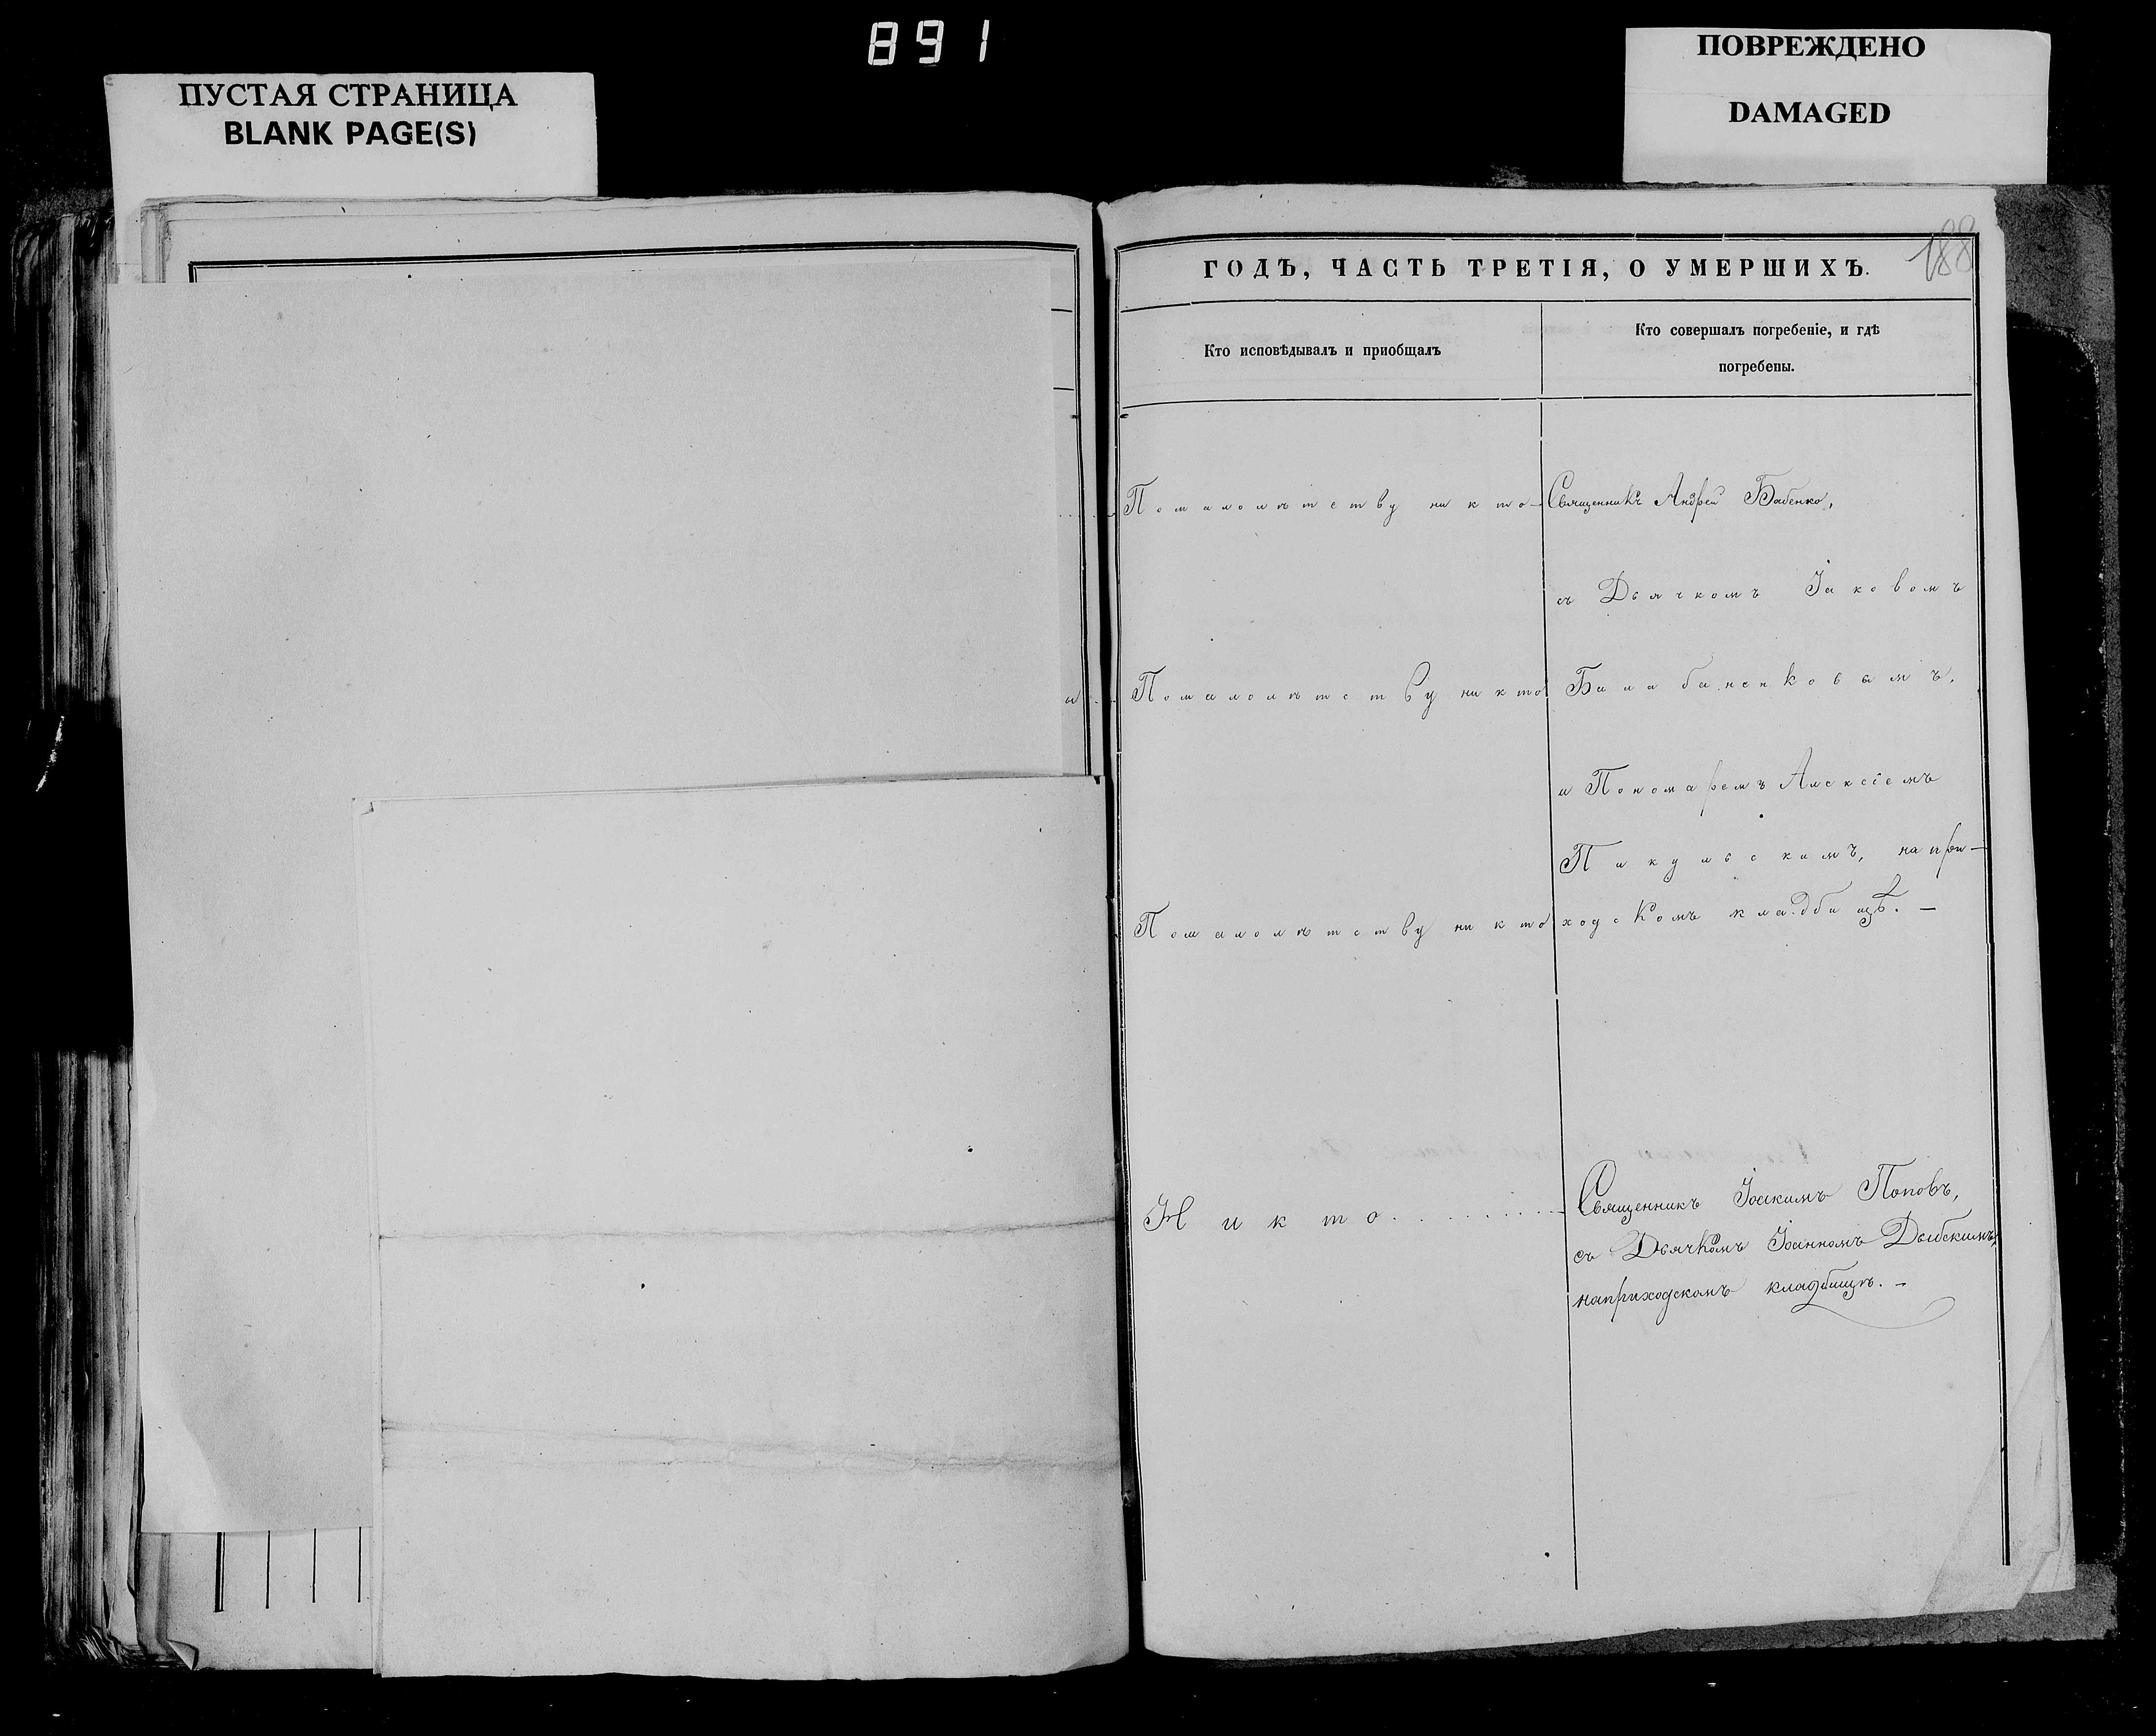 891
ПУСТАЯ СТРАНИЦА
BLANK PAGE(S)
ПОВРЕЖДЕНО
DAMAGED
188
ГОДЪ, ЧАСТЬ ТРЕТІЯ, О УМЕРШИХЪ.
Кто исповѣдывалъ и приобщалъ
Кто совершалъ погребеніе, и гдѣ
погребены.
Помалолѣтству никто —
Священникъ Андрей Бабенко,
съ Дьячкомъ Іаковомъ
Помалолѣтству никто
Балабаненковымъ,
и Пономаремъ Алексіемъ
Пикульскимъ, на при-
Помалолѣтству никто
ходскомъ кладбищѣ. —
Никто . . . . . . . . .
Священникъ Іоакимъ Поповъ,
съ Дьячкомъ Іоанномъ
наприходскомъ кладбищѣ. —